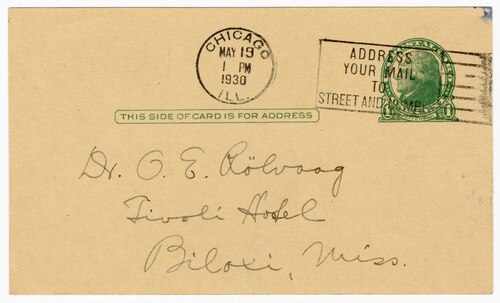 CHICAGO
MAY 19
1 PM
1930
ILL.
ADDRESS
YOUR MAIL
TO
STREET AND
THIS SIDE OF CARD IS FOR ADDRESS
Dr. O. E. Rölvaag
Tivoli Hotel
Biloxi, Miss.